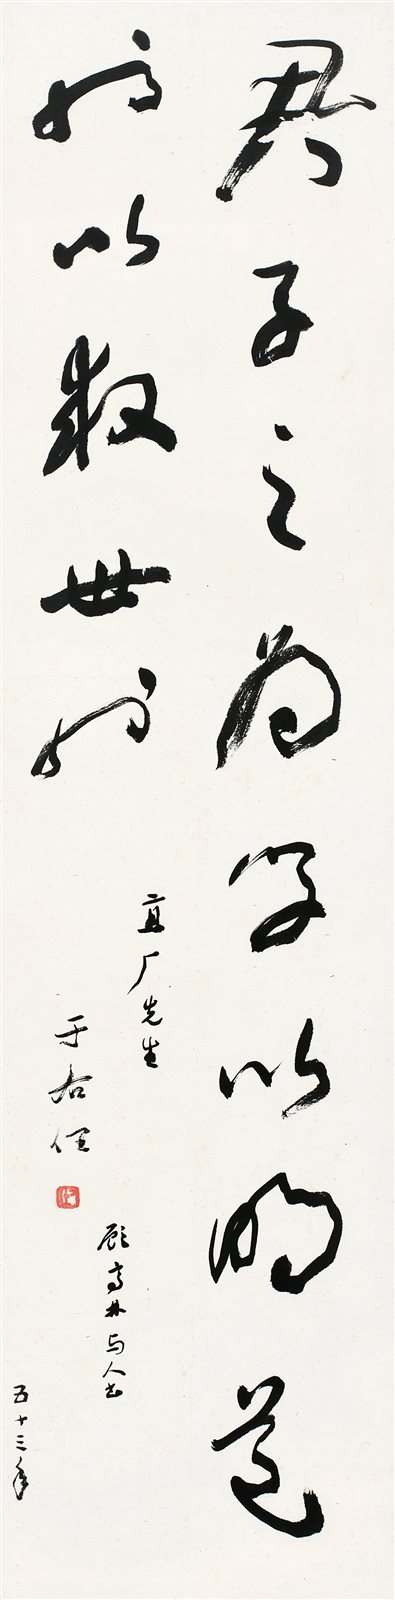 君子之為學以明道
也以救世也
厂先生
于右任
顧亭林与人書
五十三年